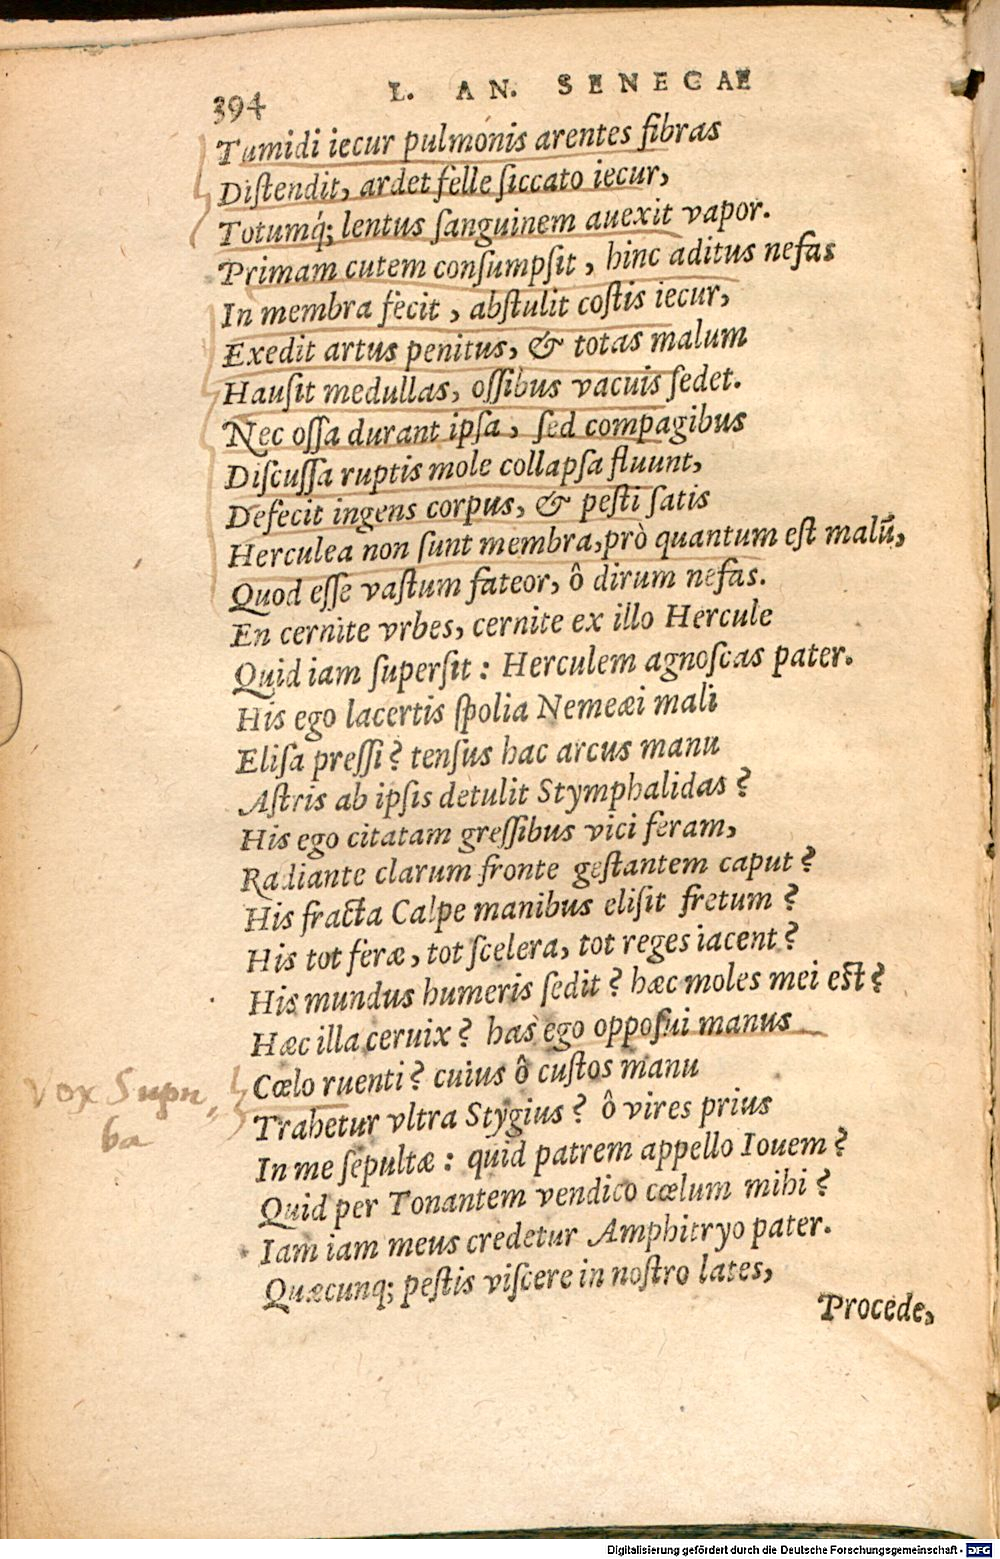 394 L. AN. SENECAE
Tumidi iecur pulmonis arentes fibras
Diſtendit, ardet felle ſiccato iecur,
Totumq́; lentus ſanguinem auexit vapor.
Primam cutem conſumpſit, hinc aditus nefas
In membra fecit, abſtulit coſtis iecur,
Exedit artus penitus, & totas malum
Hauſit medullas, oſſibus vacuis ſedet.
Nec oſſa durant ipſa, ſed compagibus
Diſcuſſa ruptis mole collapſa fluunt,
Defecit ingens corpus, & peſti ſatis
Herculea non ſunt membra, prò quantum eſt malũ,
Quod eſſe vaſtum fateor, ô dirum nefas.
En cernite vrbes, cernite ex illo Hercule
Quid iam ſuperſit: Herculem agnoſcas pater.
His ego lacertis ſpolia Nemeæi mali
Eliſa preſſi? tenſus hac arcus manu
Aſtris ab ipſis detulit Stymphalidas?
His ego citatam greſſibus vici feram,
Radiante clarum fronte geſtantem caput?
His fracta Calpe manibus eliſit fretum?
His tot feræ, tot ſcelera, tot reges iacent?
His mundus humeris ſedit? hæc moles mei eſt?
Hæc illa ceruix? has ego oppoſui manus
Cœlo ruenti? cuius ô cuſtos manu
Vox Supr
Trahetur vltra Stygius? ô vires prius
ba
In me ſepultæ: quid patrem appello Iouem?
Quid per Tonantem vendico cœlum mihi?
Iam iam meus credetur Amphitryo pater.
Quæcunq; peſtis viſcere in noſtro lates,
Procede,
Digitalisierung gefördert durch die Deutsche Forschungsgemeinschaft - DFG